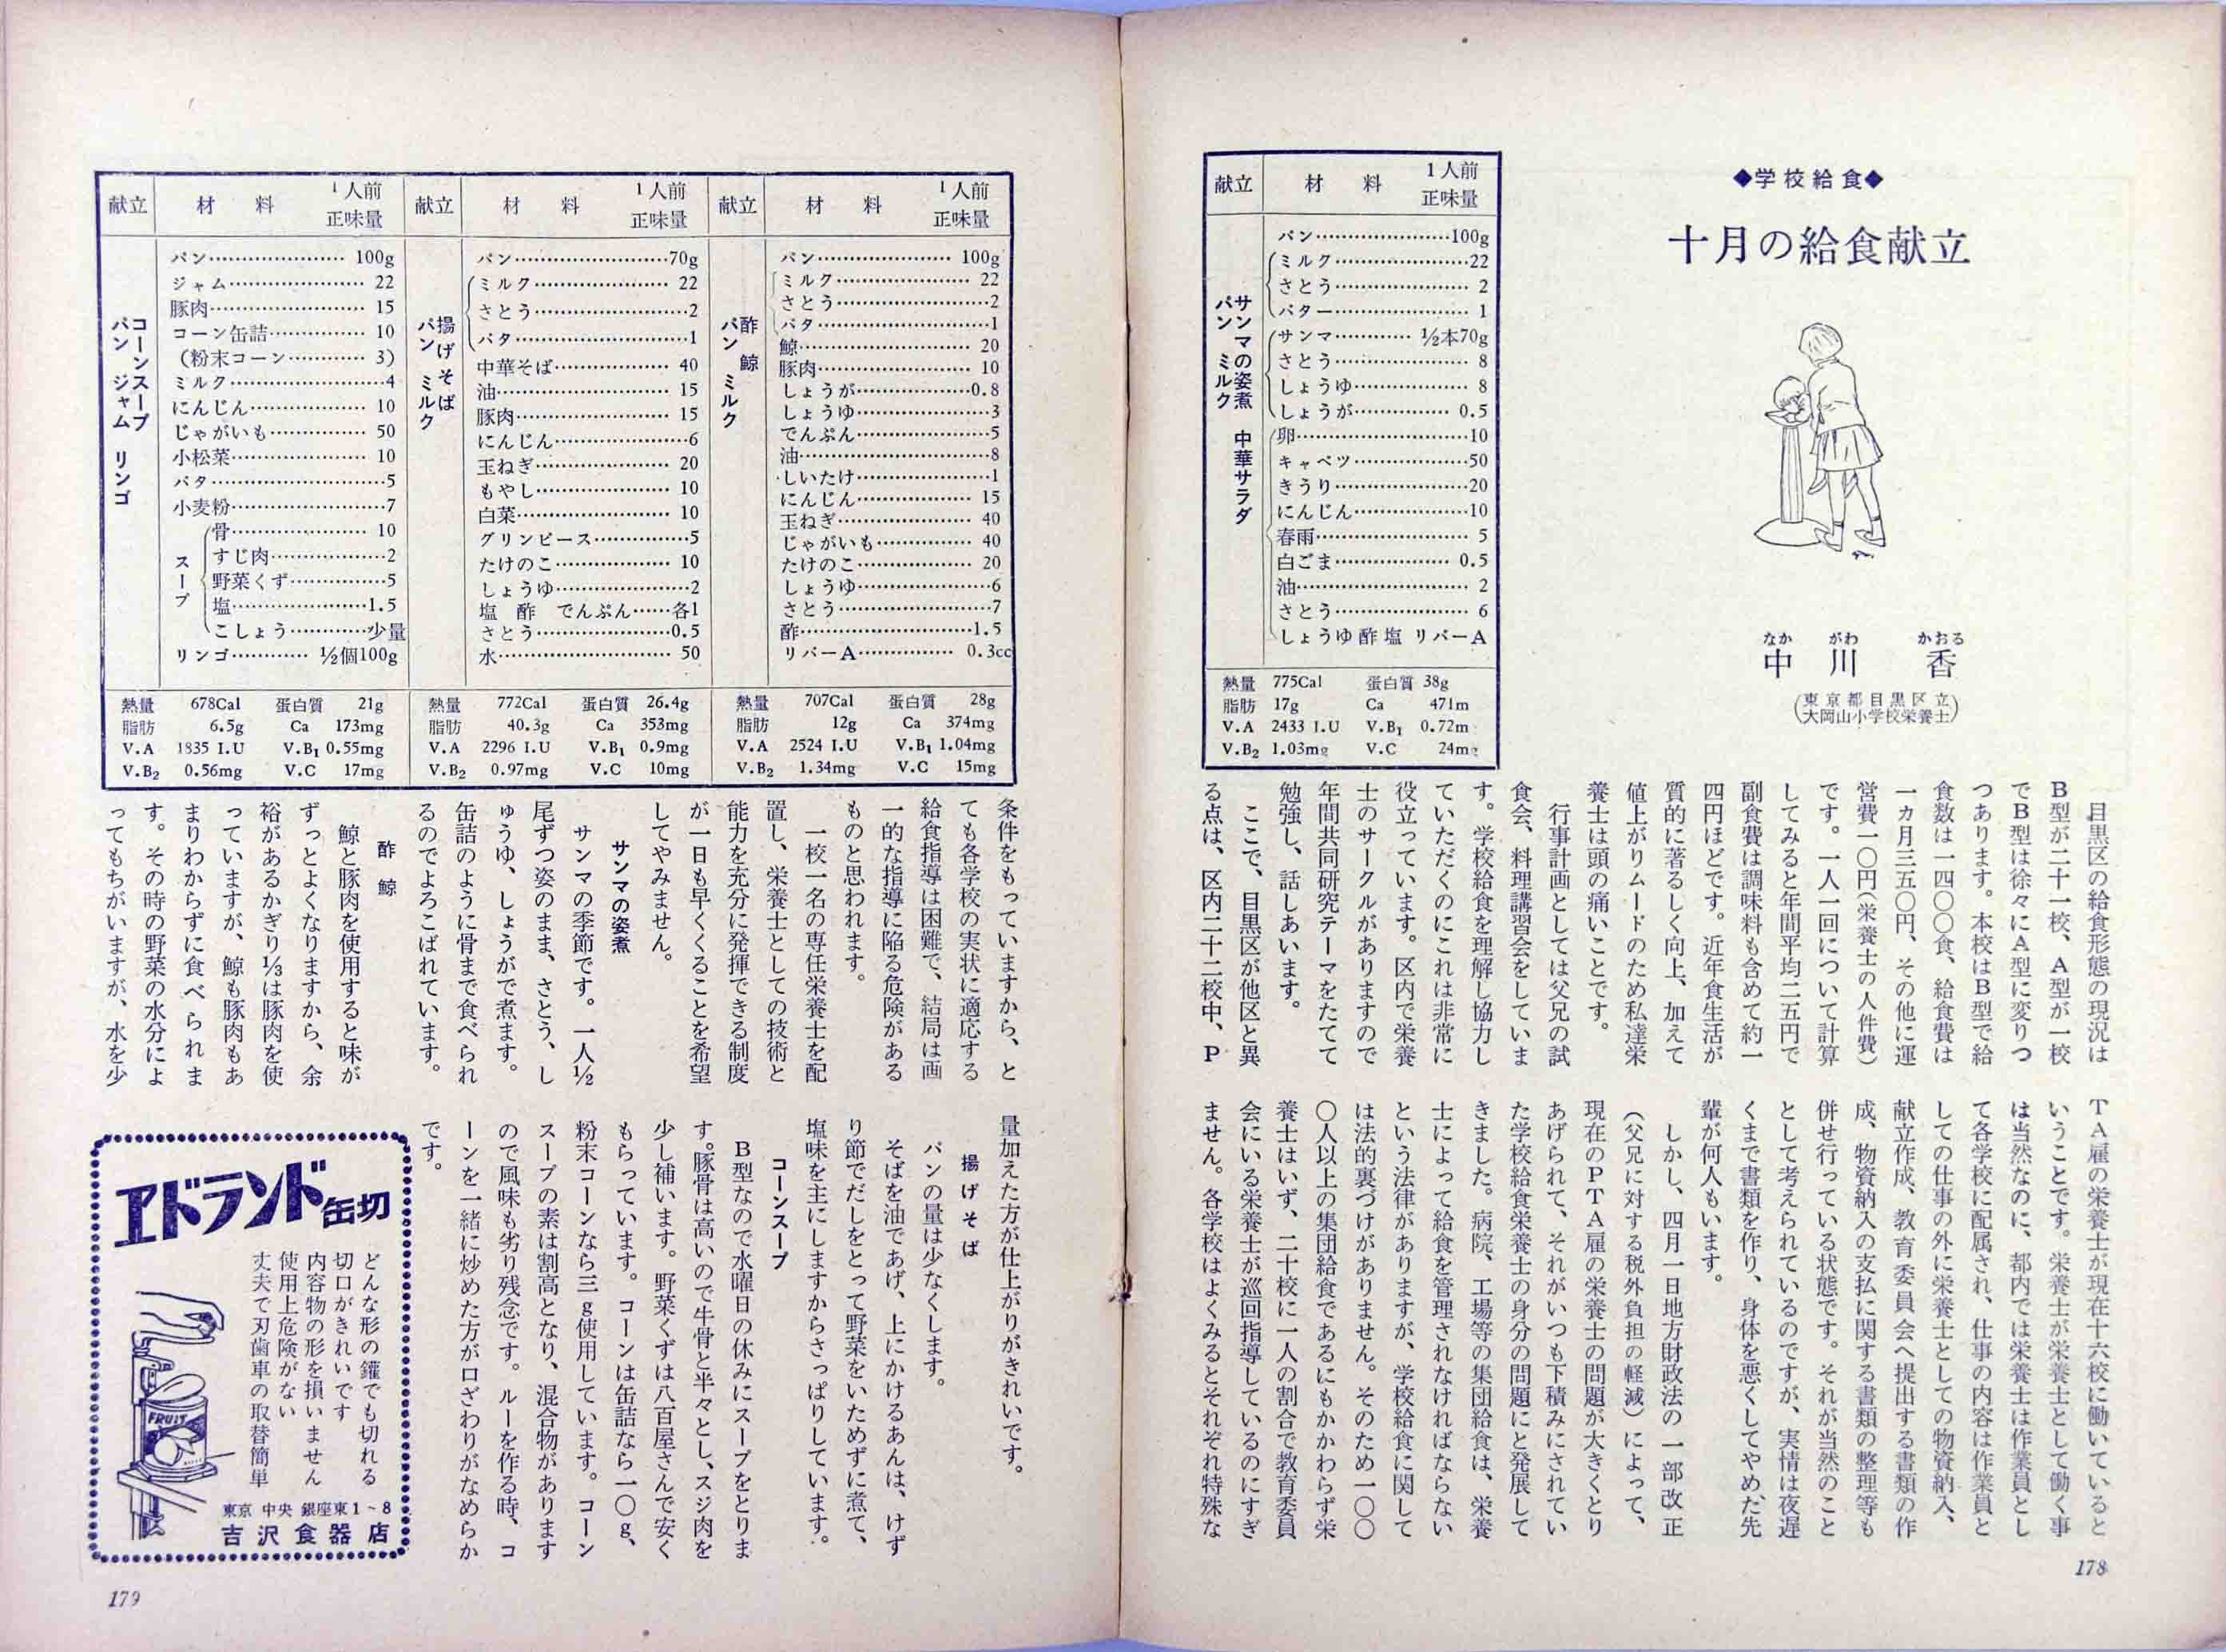 ◆学校給食◆
十月の給食献立
なか がわ かおる
中川 香
(東京都目黒区立
大岡山小学校栄養士)
献立 材料 1人前正味量
サンマの姿煮 中華サラダ
パン ミルク
パン……100g
ミルク……22
さとう……2
バター……1
サンマ……½本70g
さとう……8
しょうゆ……8
しょうが……0.5
卵……10
キャベツ……50
きうり……20
にんじん……10
春雨……5
白ごま……0.5
油……2
さとう……6
しょうゆ 酢 塩 リバーA
熱量 775Cal 蛋白質 38g
脂肪 17g Ca 471m
V.A 2433 I.U V.B₁ 0.72m
V.B₂ 1.03mg V.C 24mg
目黒区の給食形態の現況は
B型が二十一校、A型が一校
でB型は徐々にA型に変りつ
つあります。本校はB型で給
食数は一四〇〇食、給食費は
一カ月三五〇円、その他に運
営費一〇円(栄養士の人件費)
です。一人一回について計算
してみると年間平均二五円で
副食費は調味料も含めて約一
四円ほどです。近年食生活が
質的に著るしく向上、加えて
値上がりムードのため私達栄
養士は頭の痛いことです。
行事計画としては父兄の試
食会、料理講習会をしていま
す。学校給食を理解し協力し
ていただくのにこれは非常に
役立っています。区内で栄養
士のサークルがありますので
年間共同研究テーマをたてて
勉強し、話しあいます。
ここで、目黒区が他区と異
る点は、区内二十二校中、P
TA雇の栄養士が現在十六校に働いていると
いうことです。栄養士が栄養士として働く事
は当然なのに、都内では栄養士は作業員とし
て各学校に配属され、仕事の内容は作業員と
しての仕事の外に栄養士としての物資納入、
献立作成、教育委員会へ提出する書類の作
成、物資納入の支払に関する書類の整理等も
併せ行っている状態です。それが当然のこと
として考えられているのですが、実情は夜遅
くまで書類を作り、身体を悪くしてやめた先
輩が何人もいます。
しかし、四月一日地方財政法の一部改正
(父兄に対する税外負担の軽減)によって、
現在のPTA雇の栄養士の問題が大きくとり
あげられて、それがいつも下積みにされてい
た学校給食栄養士の身分の問題にと発展して
きました。病院、工場等の集団給食は、栄養
士によって給食を管理されなければならない
という法律がありますが、学校給食に関して
は法的裏づけがありません。そのため一〇〇
〇人以上の集団給食であるにもかかわらず栄
養士はいず、二十校に一人の割合で教育委員
会にいる栄養士が巡回指導しているのにすぎ
ません。各学校はよくみるとそれぞれ特殊な
178
献立 材料 1人前正味量
酢鯨
パン ミルク
パン……100g
ミルク……22
さとう……2
バタ……1
鯨……20
豚肉……10
しょうが……0.8
しょうゆ……3
でんぷん……5
油……8
しいたけ……1
にんじん……15
玉ねぎ……40
じゃがいも……40
たけのこ……20
しょうゆ……6
さとう……7
酢……1.5
リバーA……0.3cc
熱量 707Cal 蛋白質 28g
脂肪 12g Ca 374mg
V.A 2524 I.U V.B₁ 1.04mg
V.B₂ 1.34mg V.C 15mg
献立 材料 1人前正味量
揚げそば
パン ミルク
パン……70g
ミルク……22
さとう……2
バタ……1
中華そば……40
油……15
豚肉……15
にんじん……6
玉ねぎ……20
もやし……10
白菜……10
グリンピース……5
たけのこ……10
しょうゆ……2
塩 酢 でんぷん……各1
さとう……0.5
水……50
熱量 772Cal 蛋白質 26.4g
脂肪 40.3g Ca 353mg
V.A 2296 I.U V.B₁ 0.9mg
V.B₂ 0.97mg V.C 10mg
献立 材料 1人前正味量
コーンスープ
パン ジャム リンゴ
パン……100g
ジャム……22
豚肉……15
コーン缶詰……10
(粉末コーン……3)
ミルク……4
にんじん……10
じゃがいも……50
小松菜……10
バタ……5
小麦粉……7
スープ
骨……10
すじ肉……2
野菜くず……5
塩……1.5
こしょう……少量
リンゴ……½個100g
熱量 678Cal 蛋白質 21g
脂肪 6.5g Ca 173mg
V.A 1835 I.U V.B₁ 0.55mg
V.B₂ 0.56mg V.C 17mg
条件をもっていますから、と
ても各学校の実状に適応する
給食指導は困難で、結局は画
一的な指導に陥る危険がある
ものと思われます。
一校一名の専任栄養士を配
置し、栄養士としての技術と
能力を充分に発揮できる制度
が一日も早くくることを希望
してやみません。
サンマの姿煮
サンマの季節です。一人½
尾ずつ姿のまま、さとう、し
ょうゆ、しょうがで煮ます。
缶詰のように骨まで食べられ
るのでよろこばれています。
酢鯨
鯨と豚肉を使用すると味が
ずっとよくなりますから、余
裕があるかぎり⅓は豚肉を使
っていますが、鯨も豚肉もあ
まりわからずに食べられま
す。その時の野菜の水分によ
ってもちがいますが、水を少
量加えた方が仕上がりがきれいです。
揚げそば
パンの量は少なくします。
そばを油であげ、上にかけるあんは、けず
り節でだしをとって野菜をいためずに煮て、
塩味を主にしますからさっぱりしています。
コーンスープ
B型なので水曜日の休みにスープをとりま
す。豚骨は高いので牛骨と半々とし、スジ肉を
少し補います。野菜くずは八百屋さんで安く
もらっています。コーンは缶詰なら一〇g、
粉末コーンなら三g使用しています。コーン
スープの素は割高となり、混合物があります
ので風味も劣り残念です。ルーを作る時、コ
ーンを一緒に炒めた方が口ざわりがなめらか
です。
エドランド缶切
どんな形の罐でも切れる
切口がきれいです
内容物の形を損いません
使用上危険がない
丈夫で刃歯車の取替簡単
FRUIT
東京 中央 銀座東1~8
吉沢食器店
179